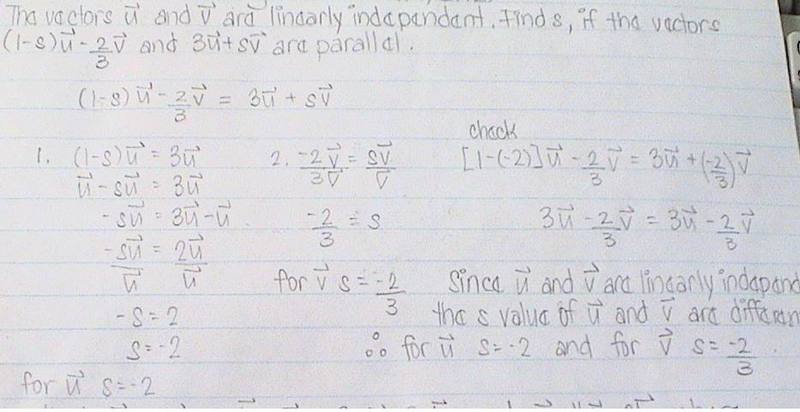 The vectors u⃗ and v⃗ are linearly independent. Find s, if the vectors
(1-s)u⃗ - 2/3 v⃗ and 3u⃗ + sv⃗ are parallel.
(1-s)u⃗ - 2/3 v⃗ = 3u⃗ + sv⃗
1. (1-s)u⃗ = 3u⃗
u⃗ - su⃗ = 3u⃗
-su⃗ = 3u⃗ - u⃗
-su⃗/u⃗ = 2u⃗/u⃗
-s = 2
s = -2
for u⃗ s = -2
2. -2v⃗/3v⃗ = sv⃗/v⃗
-2/3 = s
for v⃗ s = -2/3
check
[1-(-2)]u⃗ - 2/3 v⃗ = 3u⃗ + (-2/3)v⃗
3u⃗ - 2/3 v⃗ = 3u⃗ - 2/3 v⃗
Since u⃗ and v⃗ are linearly independ
the s value of u⃗ and v⃗ are differen
∴ for u⃗ s = -2 and for v⃗ s = -2/3.